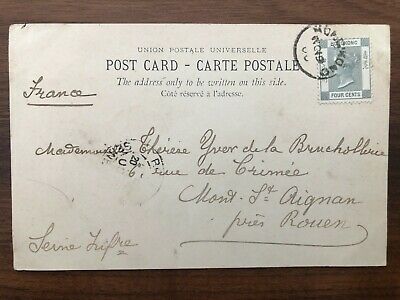 UNION POSTALE UNIVERSELLE
POST CARD - CARTE POSTALE
The address only to be written on this side.
Côté réservé à l'adresse.
HONG KONG
FOUR CENTS
France
Mademoiselle Thérèse Yver de la Bruchollerie
6, rue de Crimée
Mont-St Aignan
près Rouen
Seine Infre